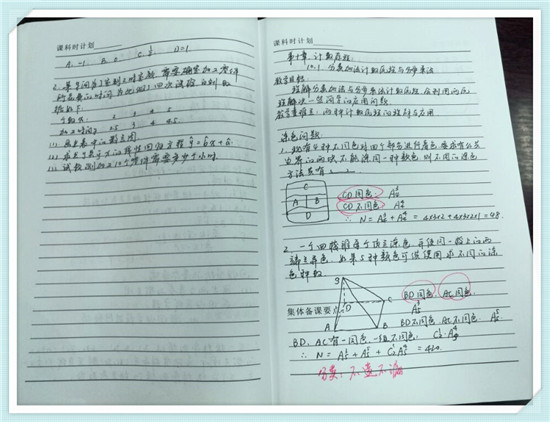 课科时计划
A. -1 B. 2 C. 1/2 D. 1
2.某车间为了规划上时定额,需要确定加工零件
所花费的时间,为此做了四次试验,得到的数
据如下:
个数x: 2 3 4 5
加工时间y 2.5 3 4 4.5
(1)画出表中的散点图
(2)求出y关于x的线性回归方程 ŷ=bx+a.
(3)试预测加工10个零件需要多少个小时.
课科时计划
第十章.计数原理
10.1 分类加法计数原理与分步乘法
教学目标
理解分类加法与分步乘法计数原理,会利用两原
理解决一些简单的应用问题
教学重难点:两种计数原理的区别与应用
涂色问题.
1.现有4种不同色对四个部分进行着色,要求有公共
边界的两块不能涂同一种颜色,则不同的涂色
方法共有
C
A B
D
CD同色: A
CD不同色: A
∴ N=A+A=4×3×2+4×3×2×1=48.
2.一个四棱锥每个顶点涂色,并使同一棱上的两
端点异色,如果5种颜色可供使用,求不同的涂
色种数.
S
C
D
A B
BD同色 AC同色.
集体备课要点
BD不同色 AC不同色.
BD、AC有一同色,一组不同色:
∴ N=A+A+CA=420.
分类:不遗不漏